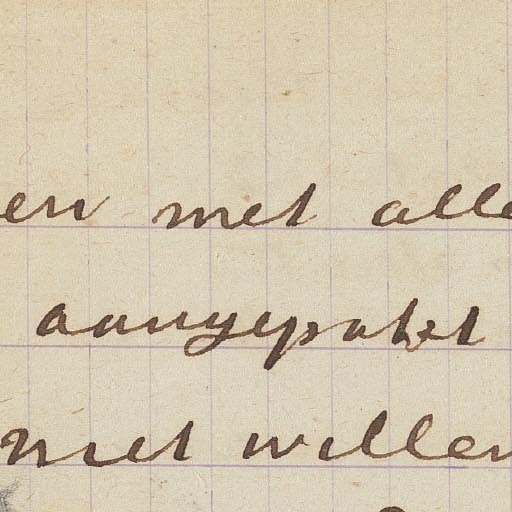 en met alle
aangepakt
met willen